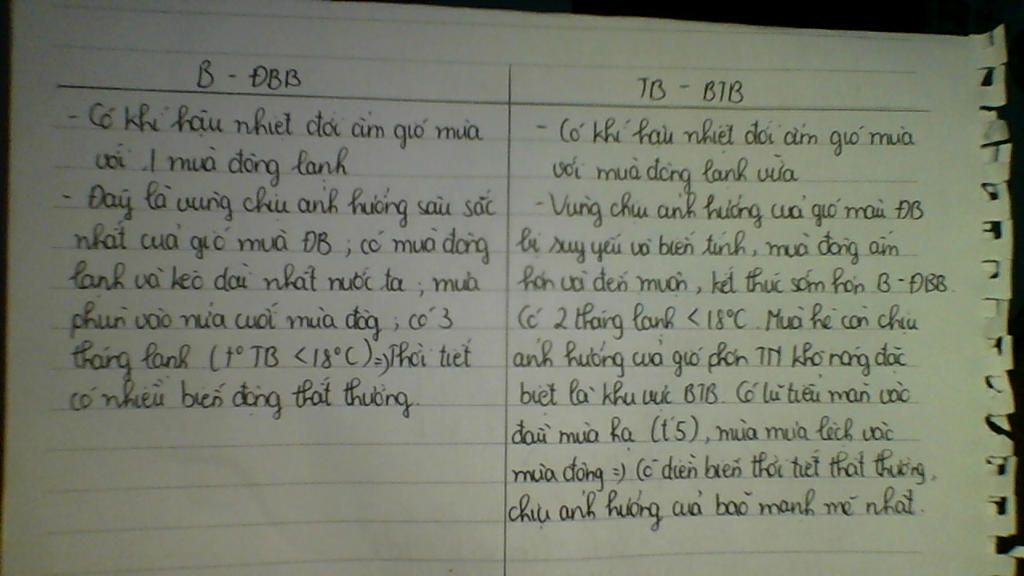 B - ĐBB
- Có khí hậu nhiệt đới ẩm gió mùa
với 1 mùa đông lạnh
- Đây là vùng chịu ảnh hưởng sâu sắc
nhất của gió mùa ĐB ; có mùa đông
lạnh và kéo dài nhất nước ta ; mưa
phùn vào nửa cuối mùa đôg ; có 3
tháng lạnh (t° TB < 18°C) => Thời tiết
có nhiều biến động thất thường.
TB - BTB
- Có khí hậu nhiệt đới ẩm gió mùa
với mùa đông lạnh vừa
- Vùng chịu ảnh hưởng của gió mùa ĐB
bị suy yếu và biến tính, mùa đông ấm
hơn và đến muộn, kết thúc sớm hơn B - ĐBB.
Có 2 tháng lạnh < 18°C. Mùa hè còn chịu
ảnh hưởng của gió phơn TN khô nóng đặc
biệt là khu vực BTB. Có lũ tiểu mãn vào
đầu mùa hạ (t'5), mùa mưa lệch vào
mùa đông => Có diễn biến thời tiết thất thường,
chịu ảnh hưởng của bão mạnh mẽ nhất.